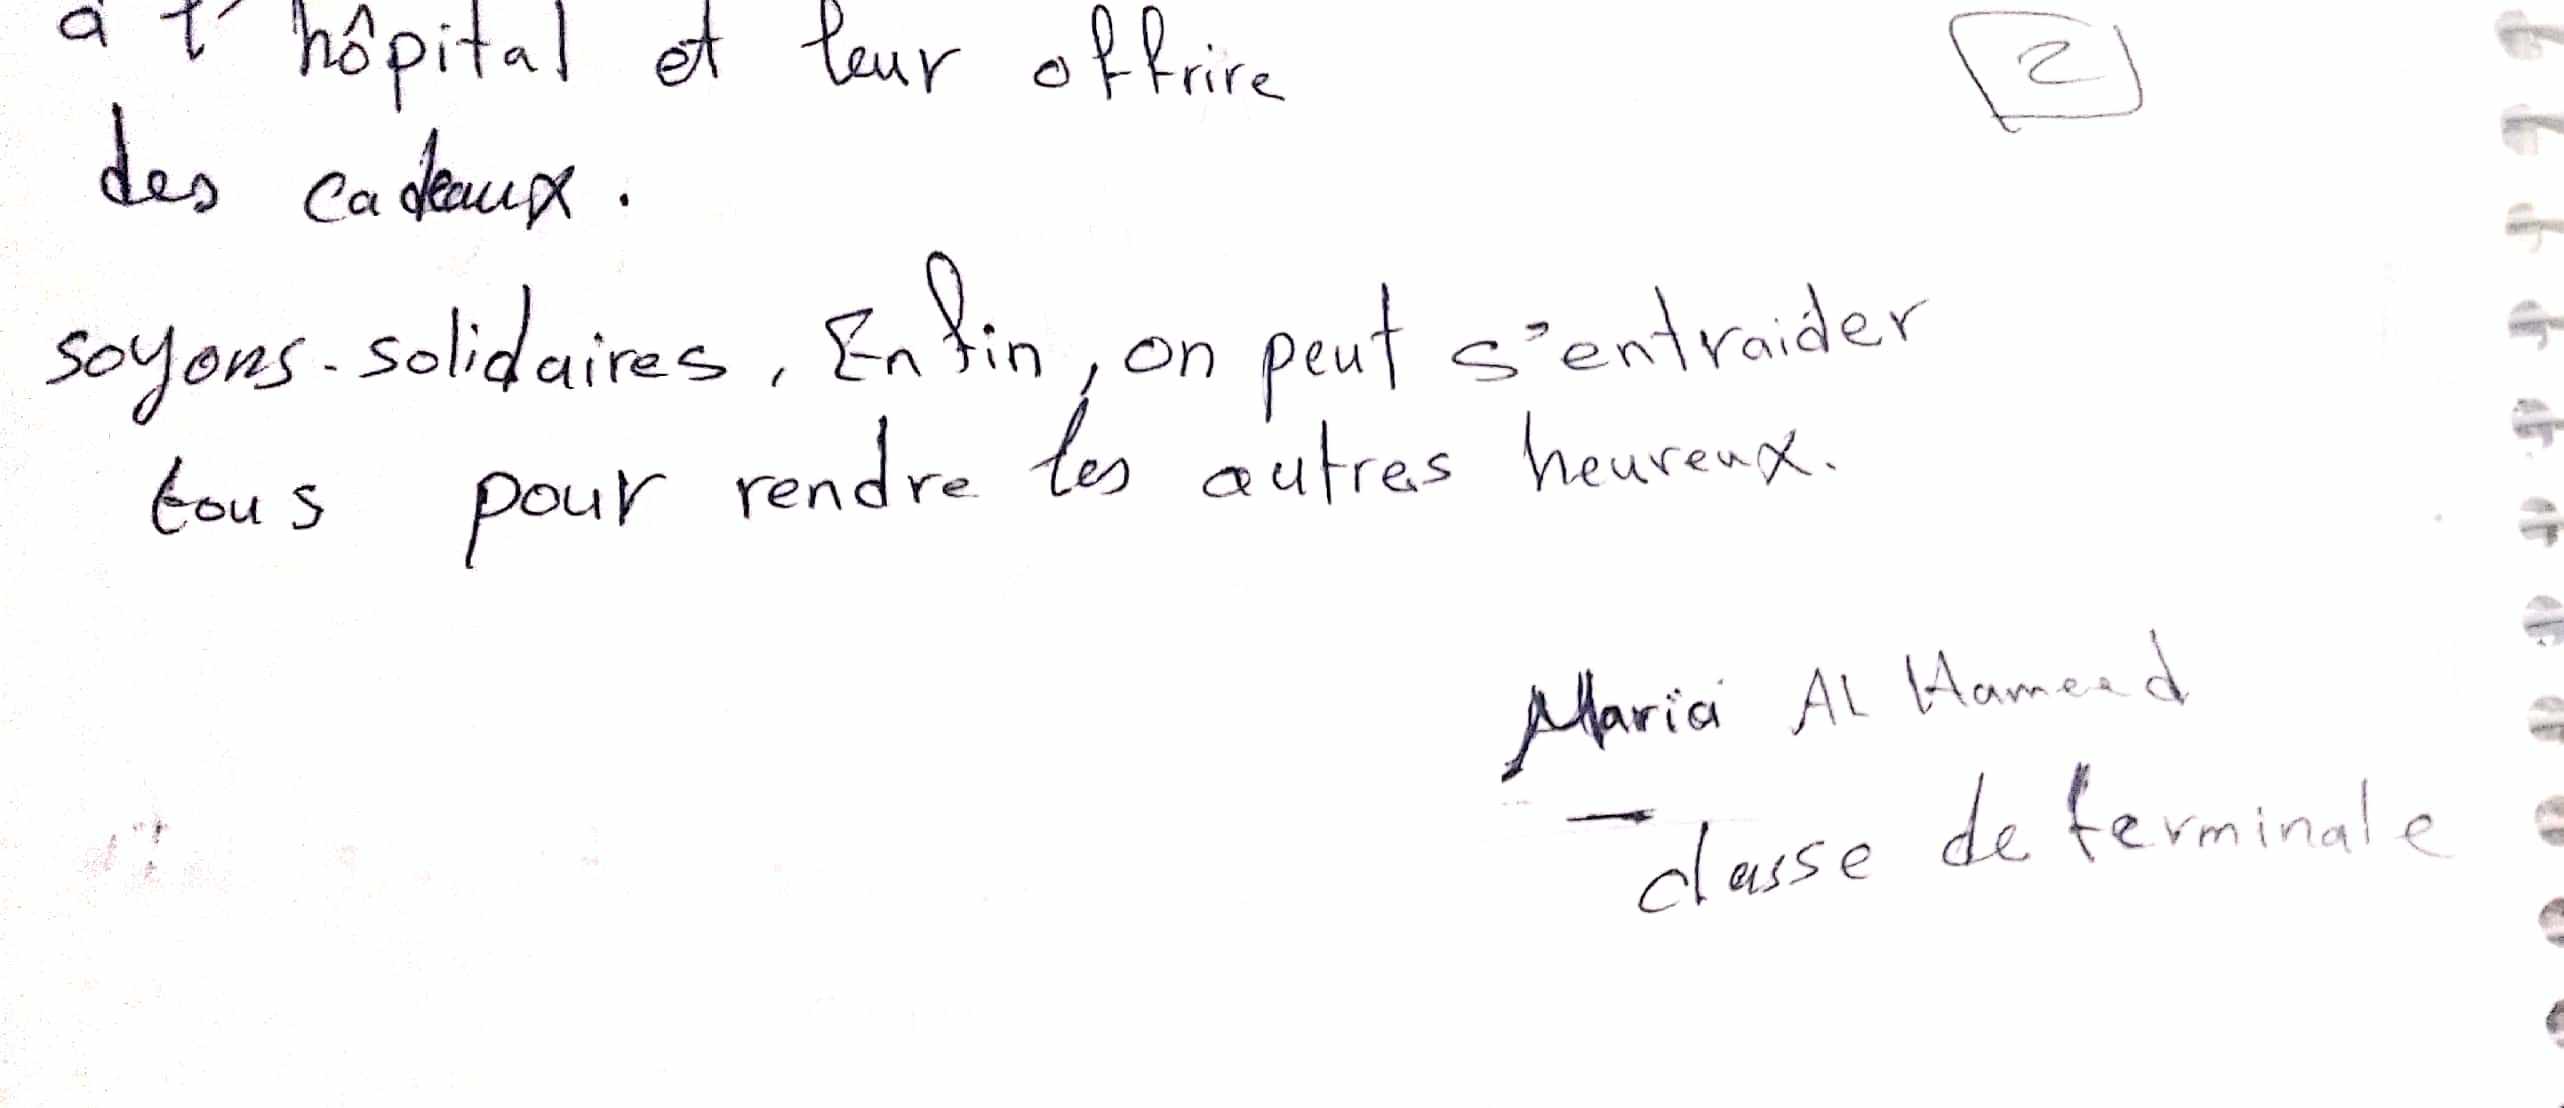 à l'hôpital et leur offrire
2
des cadeaux.
soyons-solidaires, Enfin, on peut s'entraider
tous pour rendre les autres heureux.
Maria AL Hameed
classe de terminale